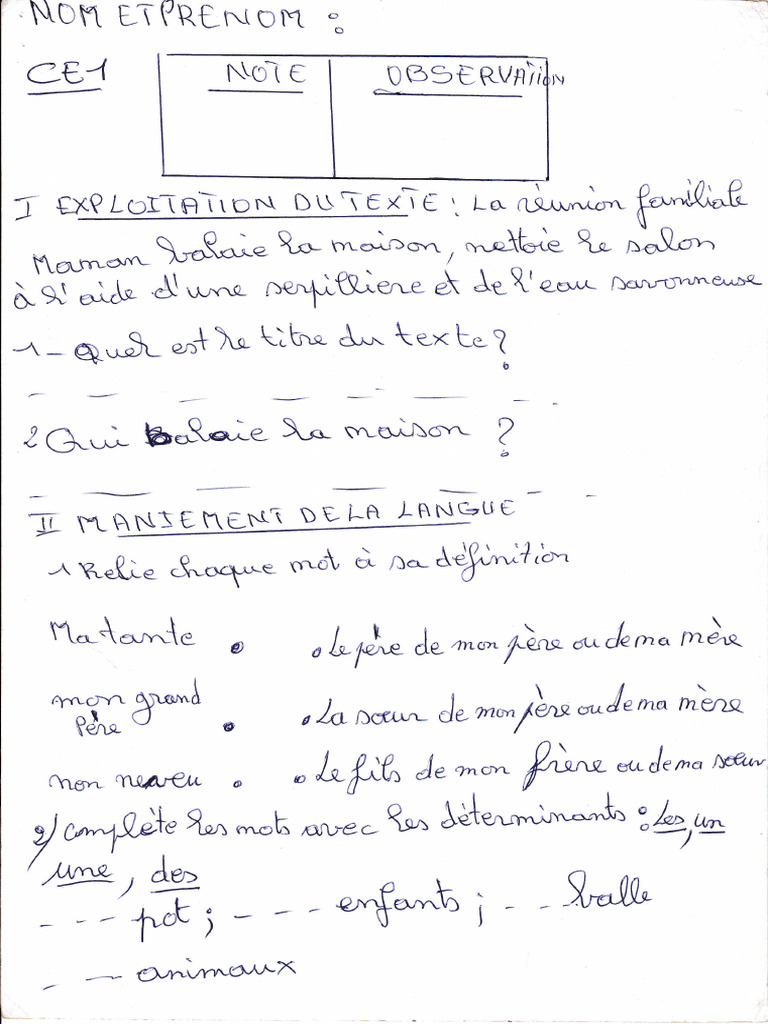 NOM ET PRENOM :
CE1
NOTE OBSERVATiION
I EXPLOITATION DU TEXTE : La réunion familiale
Maman balaie la maison, nettoie le salon
à l'aide d'une serpilliere et de l'eau savonneuse
1- Quel est le titre du texte ?
2 Qui balaie la maison ?
II MANIEMENT DE LA LANGUE
1 Relie chaque mot à sa définition
Ma tante . . Le père de mon père ou de ma mère
mon grand
Père . . La sœur de mon père ou de ma mère
non neveu . . Le fils de mon frère ou de ma sœur
2/ complète les mots avec les déterminants : Les, un
une, des
- - - pot ; - - - - enfants ; - - - balle
- - - animaux